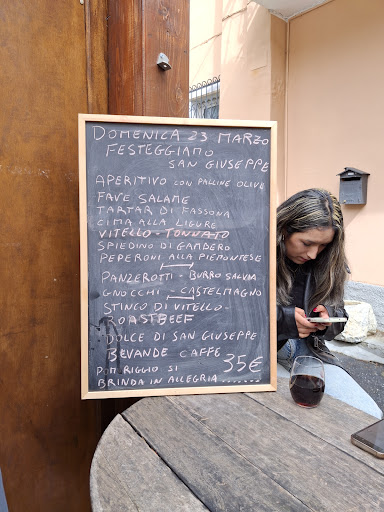 DOMENICA 23 MARZO
FESTEGGIAMO
SAN GIUSEPPE
APERITIVO CON PALLINE OLIVE
FAVE SALAME
TARTAR DI FASSONA
CIMA ALLA LIGURE
VITELLO-TONNATO
SPIEDINO DI GAMBERO
PEPERONI ALLA PIEMONTESE
PANZEROTTI - BURRO SALVIA
GNOCCHI - CASTELMAGNO
STINCO DI VITELLO-
ROASTBEEF
DOLCE DI SAN GIUSEPPE
BEVANDE CAFFE
POM RIGGIO SI 35€
BRINDA IN ALLEGRIA.......